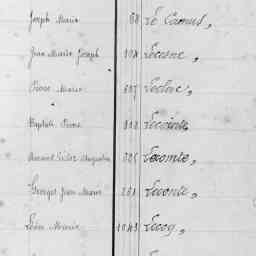 Joseph Marie 88 Le Camus,
Jean Marie Joseph 104 Lecerne,
Pierre Marie Leclerc,
Baptiste Pierre 812 Lecointe,
Armand Victor Augustin Lecomte,
Georges Jean Marie 261 Leconte,
Léon Marie 1043 Lecoq,